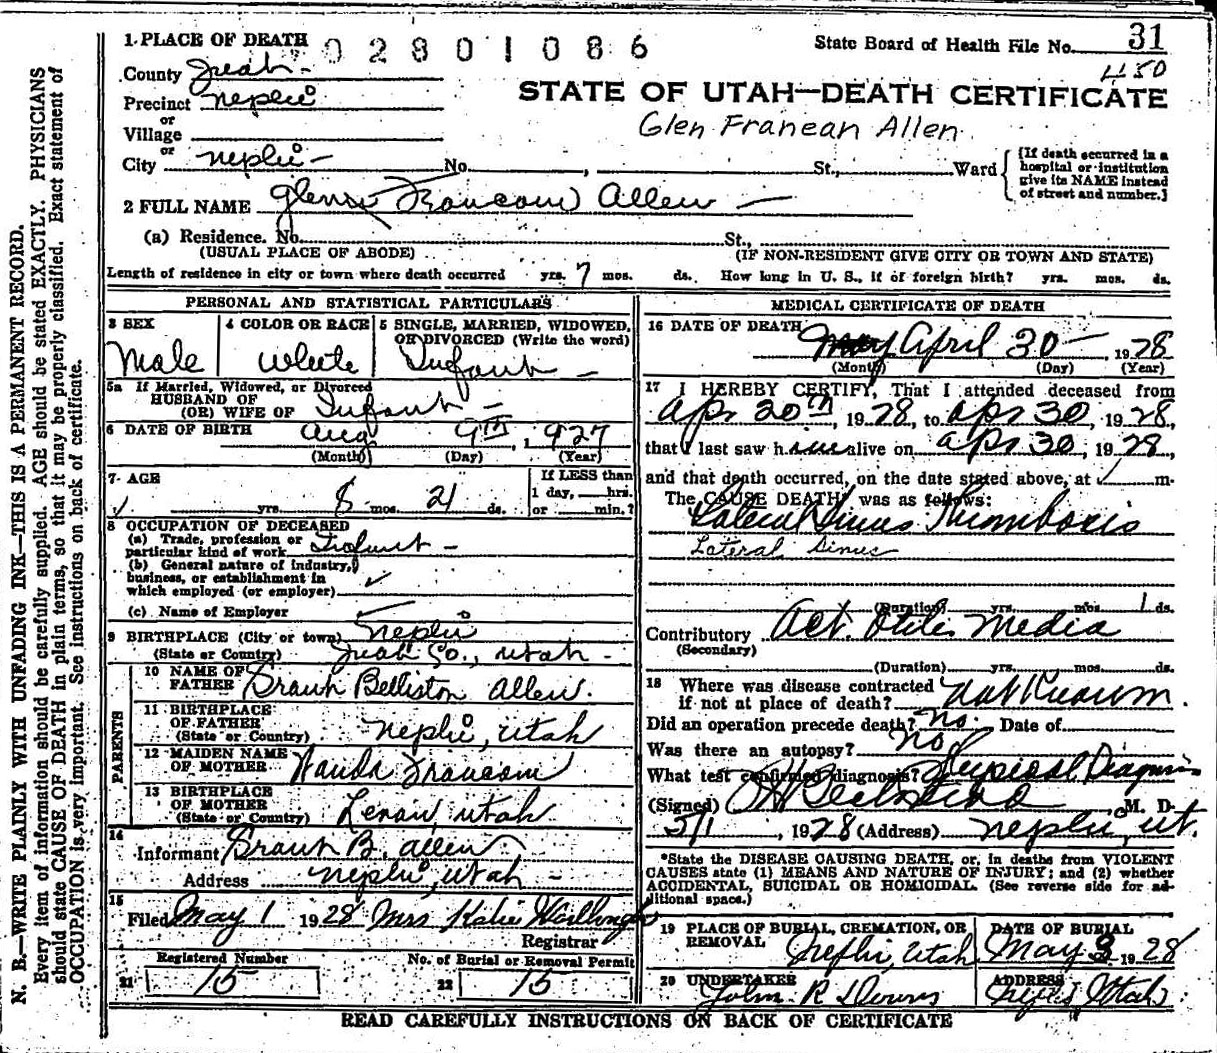 1 PLACE OF DEATH 02801086 State Board of Health File No. 31
County Juab
1150
Precinct Nephi
STATE OF UTAH—DEATH CERTIFICATE
or
Village
Glen Franean Allen
or
City Nephi No. , St., Ward
[If death occurred in a hospital or institution give its NAME instead of street and number.]
2 FULL NAME Glenn Francom Allen
(a) Residence. No. St.,
(USUAL PLACE OF ABODE) (IF NON-RESIDENT GIVE CITY OR TOWN AND STATE)
Length of residence in city or town where death occurred yrs. 7 mos. ds. How long in U. S., if of foreign birth? yrs. mos. ds.
PERSONAL AND STATISTICAL PARTICULARS
3 SEX
Male
4 COLOR OR RACE
White
5 SINGLE, MARRIED, WIDOWED, OR DIVORCED (Write the word)
Infant
5a If Married, Widowed, or Divorced
HUSBAND OF
(OR) WIFE OF Infant
6 DATE OF BIRTH Aug 9th, 1927
(Month) (Day) (Year)
7 AGE
yrs. 8 mos. 21 ds.
If LESS than
1 day, hrs.
or min.?
8 OCCUPATION OF DECEASED
(a) Trade, profession or
particular kind of work Infant
(b) General nature of industry,
business, or establishment in
which employed (or employer)
(c) Name of Employer
9 BIRTHPLACE (City or town) Nephi
(State or Country) Juab Co., Utah
PARENTS
10 NAME OF
FATHER Grant Belliston Allen.
11 BIRTHPLACE
OF FATHER
(State or Country) Nephi, Utah
12 MAIDEN NAME
OF MOTHER Wanda Francom
13 BIRTHPLACE
OF MOTHER
(State or Country) Levan, Utah.
14
Informant Grant B. Allen
Address Nephi, Utah
15
Filed May 1 1928 Mrs Katie
Registrar
Registered Number No. of Burial or Removal Permit
21 15 22 15
MEDICAL CERTIFICATE OF DEATH
16 DATE OF DEATH
May April 30, 1928
(Month) (Day) (Year)
17 I HEREBY CERTIFY, That I attended deceased from
Apr 30th, 1928, to Apr 30, 1928,
that I last saw him alive on Apr 30, 1928,
and that death occurred, on the date stated above, at m.
The CAUSE DEATH was as follows:
Lateral Sinus Thrombosis
Lateral Sinus
(Duration) yrs. mos. 1 ds.
Contributory Act. Otitis Media
(Secondary)
(Duration) yrs. mos. ds.
18 Where was disease contracted
if not at place of death? Not Known.
Did an operation precede death? No. Date of
Was there an autopsy? No
What test confirmed diagnosis? Physical Diagnosis
(Signed) M. D.
5/1, 1928 (Address) Nephi, Ut.
*State the DISEASE CAUSING DEATH, or, in deaths from VIOLENT
CAUSES state (1) MEANS AND NATURE OF INJURY; and (2) whether
ACCIDENTAL, SUICIDAL OR HOMICIDAL. (See reverse side for ad-
ditional space.)
19 PLACE OF BURIAL, CREMATION, OR
REMOVAL Nephi, Utah
DATE OF BURIAL
May 3 1928
20 UNDERTAKER
John R Downs
ADDRESS
Nephi Utah
READ CAREFULLY INSTRUCTIONS ON BACK OF CERTIFICATE
N. B.—WRITE PLAINLY WITH UNFADING INK—THIS IS A PERMANENT RECORD.
Every item of information should be carefully supplied. AGE should be stated EXACTLY. PHYSICIANS
should state CAUSE OF DEATH in plain terms, so that it may be properly classified. Exact statement of
OCCUPATION is very important. See instructions on back of certificate.